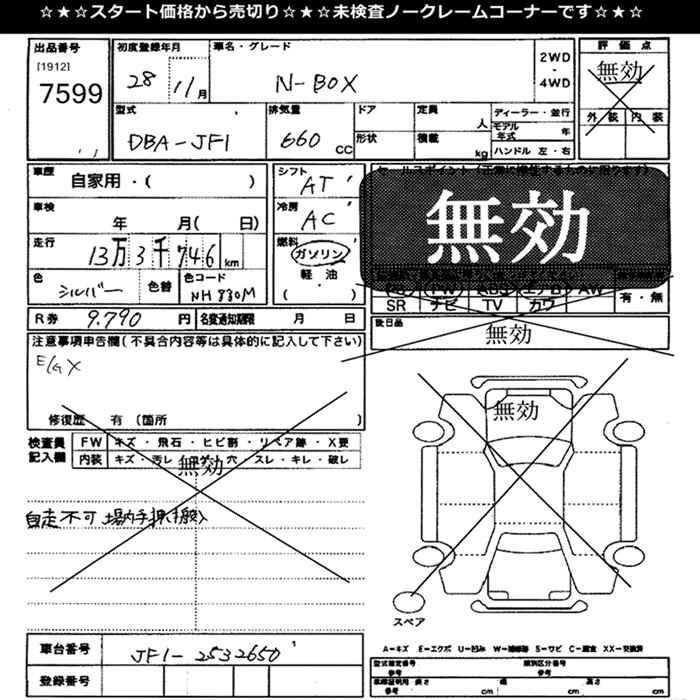 ☆★☆スタート価格から売切り☆★☆未検査ノークレームコーナーです☆★☆
出品番号
[1912]
7599
初度登録年月
28 11月
車名・グレード
N-BOX
2WD
・
4WD
評価点
無効
外装 内装
型式
DBA-JF1
排気量
660 CC
ドア
形状
定員 人
積載 kg
ディーラー・並行
モデル年式 年
ハンドル 左・右
車歴
自家用・( )
車検
年 月( 日)
走行
13万3千746km
色
シルバー
色替
色コード
NH830M
シフト
AT
冷房
AC
燃料
ガソリン
軽油
( )
無効
PS PW ABS エアロ AW
SR ナビ TV カワ
有・無
後日品
無効
R券 9,790 円
名変通知期限 月 日
注意事項申告欄(不具合内容等は具体的に記入して下さい)
E/G X
修復歴 有 (箇所 )
検査員記入欄
FW キズ・飛石・ヒビ割・リペア跡・X要
内装 キズ・汚レ・コゲ・穴 スレ・キレ・破レ
無効
自走不可 場内手押(搬入
無効
スペア
車台番号
JF1-2532650
登録番号
A-キズ E-エクボ U-凹み W-補修跡 S-サビ C-腐食 XX-交換済
型式指定番号
参考
類別区分番号
参考
車検証明用 長さ
参考 cm
幅
cm
高さ
cm